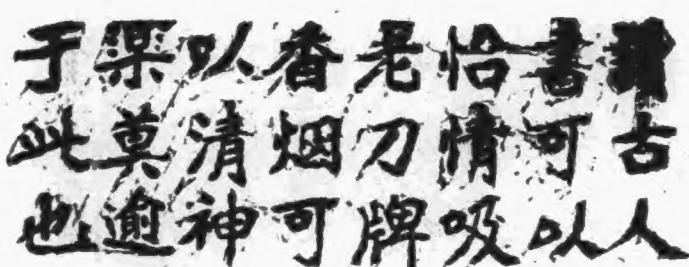 讀古人
書可以
怡情吸
老刀牌
香烟可
以清神
樂莫逾
于此也